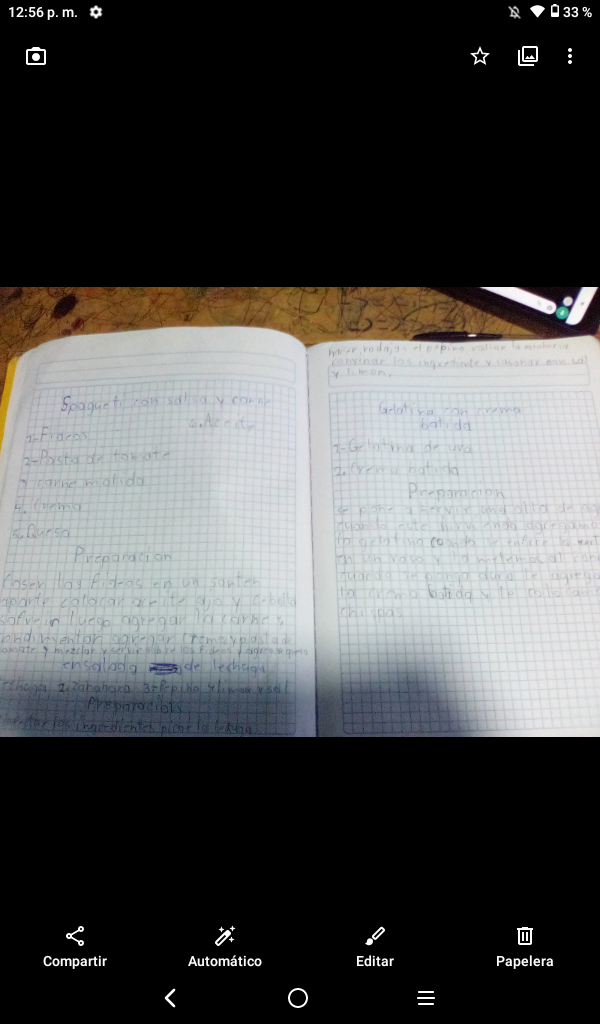 12:56 p. m.
33 %
Spagueti con salsa y carne
1-Fideos
6. Aceite
2-Pasta de tomate
3 carne molida
4. Crema
5. Queso
Preparacion
Coser los fideos en un santen
aparte colocar aceite ajo y cebolla
sofreir luego agregar la carne y
condimentar agregar crema y pasta de
tomate y mezclar y servir sobre los fideos y agregar queso
ensalada de lechuga
lechuga 2. Zanahora 3-Pepino 4 limon y sal
Preparacion
los ingredientes picar la lechuga
el pepino rallar la
convinar los ingredientes y sasonar con sal
y limon.
Gelatina con crema
batida
1-Gelatina de uva
2. Crema batida
Preparacion
se pone a hervir una de
cuando este hirviendo agregamos
la gelatina cuando se enfrie la
en un vaso y la metemos al
cuando se ponga dura le
la crema batida y le
chispas
Compartir
Automático
Editar
Papelera